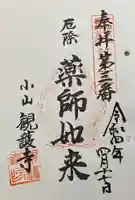 奉拝第三番
令和四年四月十七日
厄除
薬師如来
小山観護寺